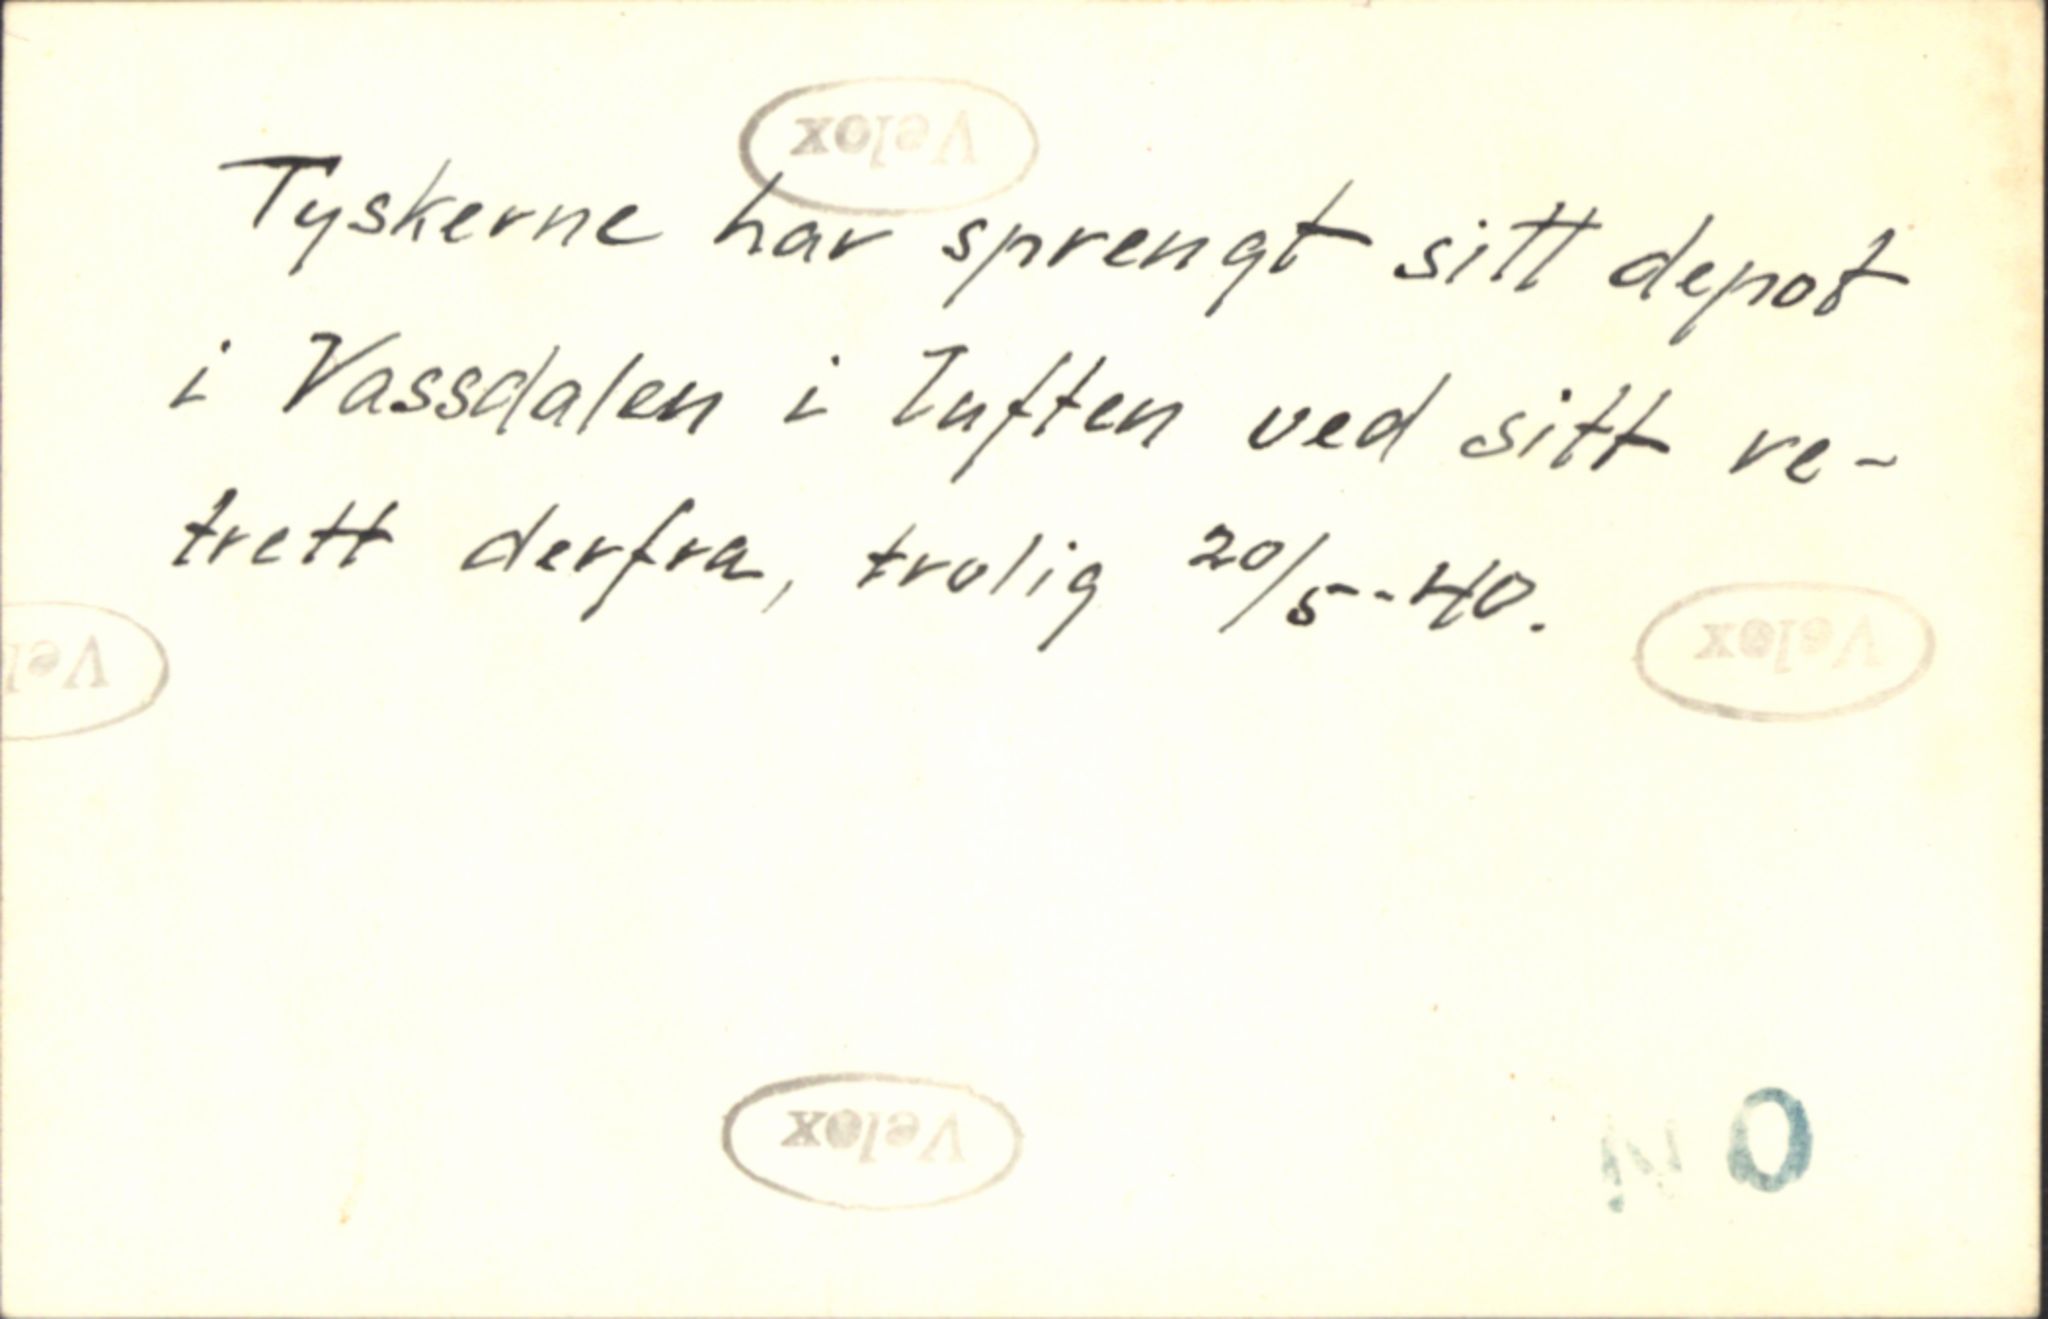 Velox
Tyskerne har sprengt sitt depot
i Vassdalen i luften ved sitt re-
trett derfra, trolig 20/5-40.
Velox
Vel
Velox
0